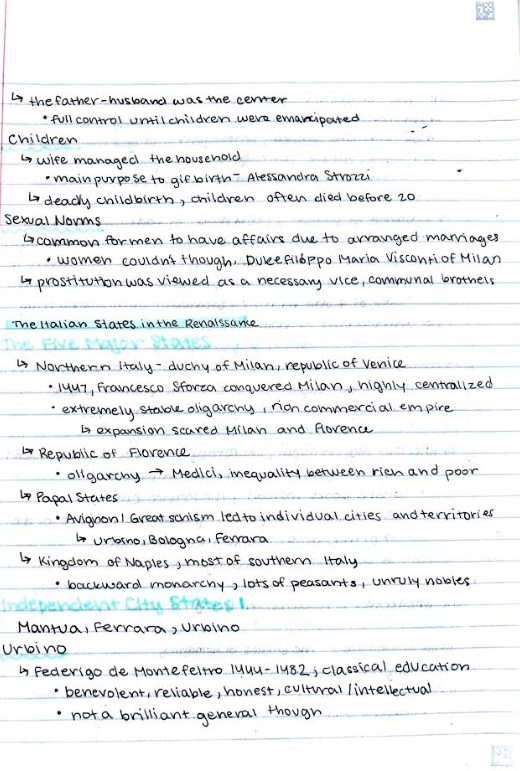 ↳ the father-husband was the center
• full control until children were emancipated
Children
↳ wife managed the household
• main purpose to gif birth - Alessandra Strozzi
↳ deadly childbirth, children often died before 20
Sexual Norms
↳ common for men to have affairs due to arranged marriages
• women couldn't though, Duke Filippo Maria Visconti of Milan
↳ prostitution was viewed as a necessary vice, communal brothels
The Italian States in the Renaissance
The Five Major States
↳ Northern Italy - duchy of Milan, republic of Venice
• 1447, Francesco Sforza conquered Milan, highly centralized
• extremely stable oligarchy, rich commercial empire
↳ expansion scared Milan and Florence
↳ Republic of Florence
• oligarchy → Medici, inequality between rich and poor
↳ Papal States
• Avignon/Great schism led to individual cities and territories
↳ Urbino, Bologna, Ferrara
↳ Kingdom of Naples, most of southern Italy
• backward monarchy, lots of peasants, unruly nobles
Independent City States
Mantua, Ferrara, Urbino
Urbino
↳ Federigo de Montefeltro 1444-1482, classical education
• benevolent, reliable, honest, cultural/intellectual
• not a brilliant general though